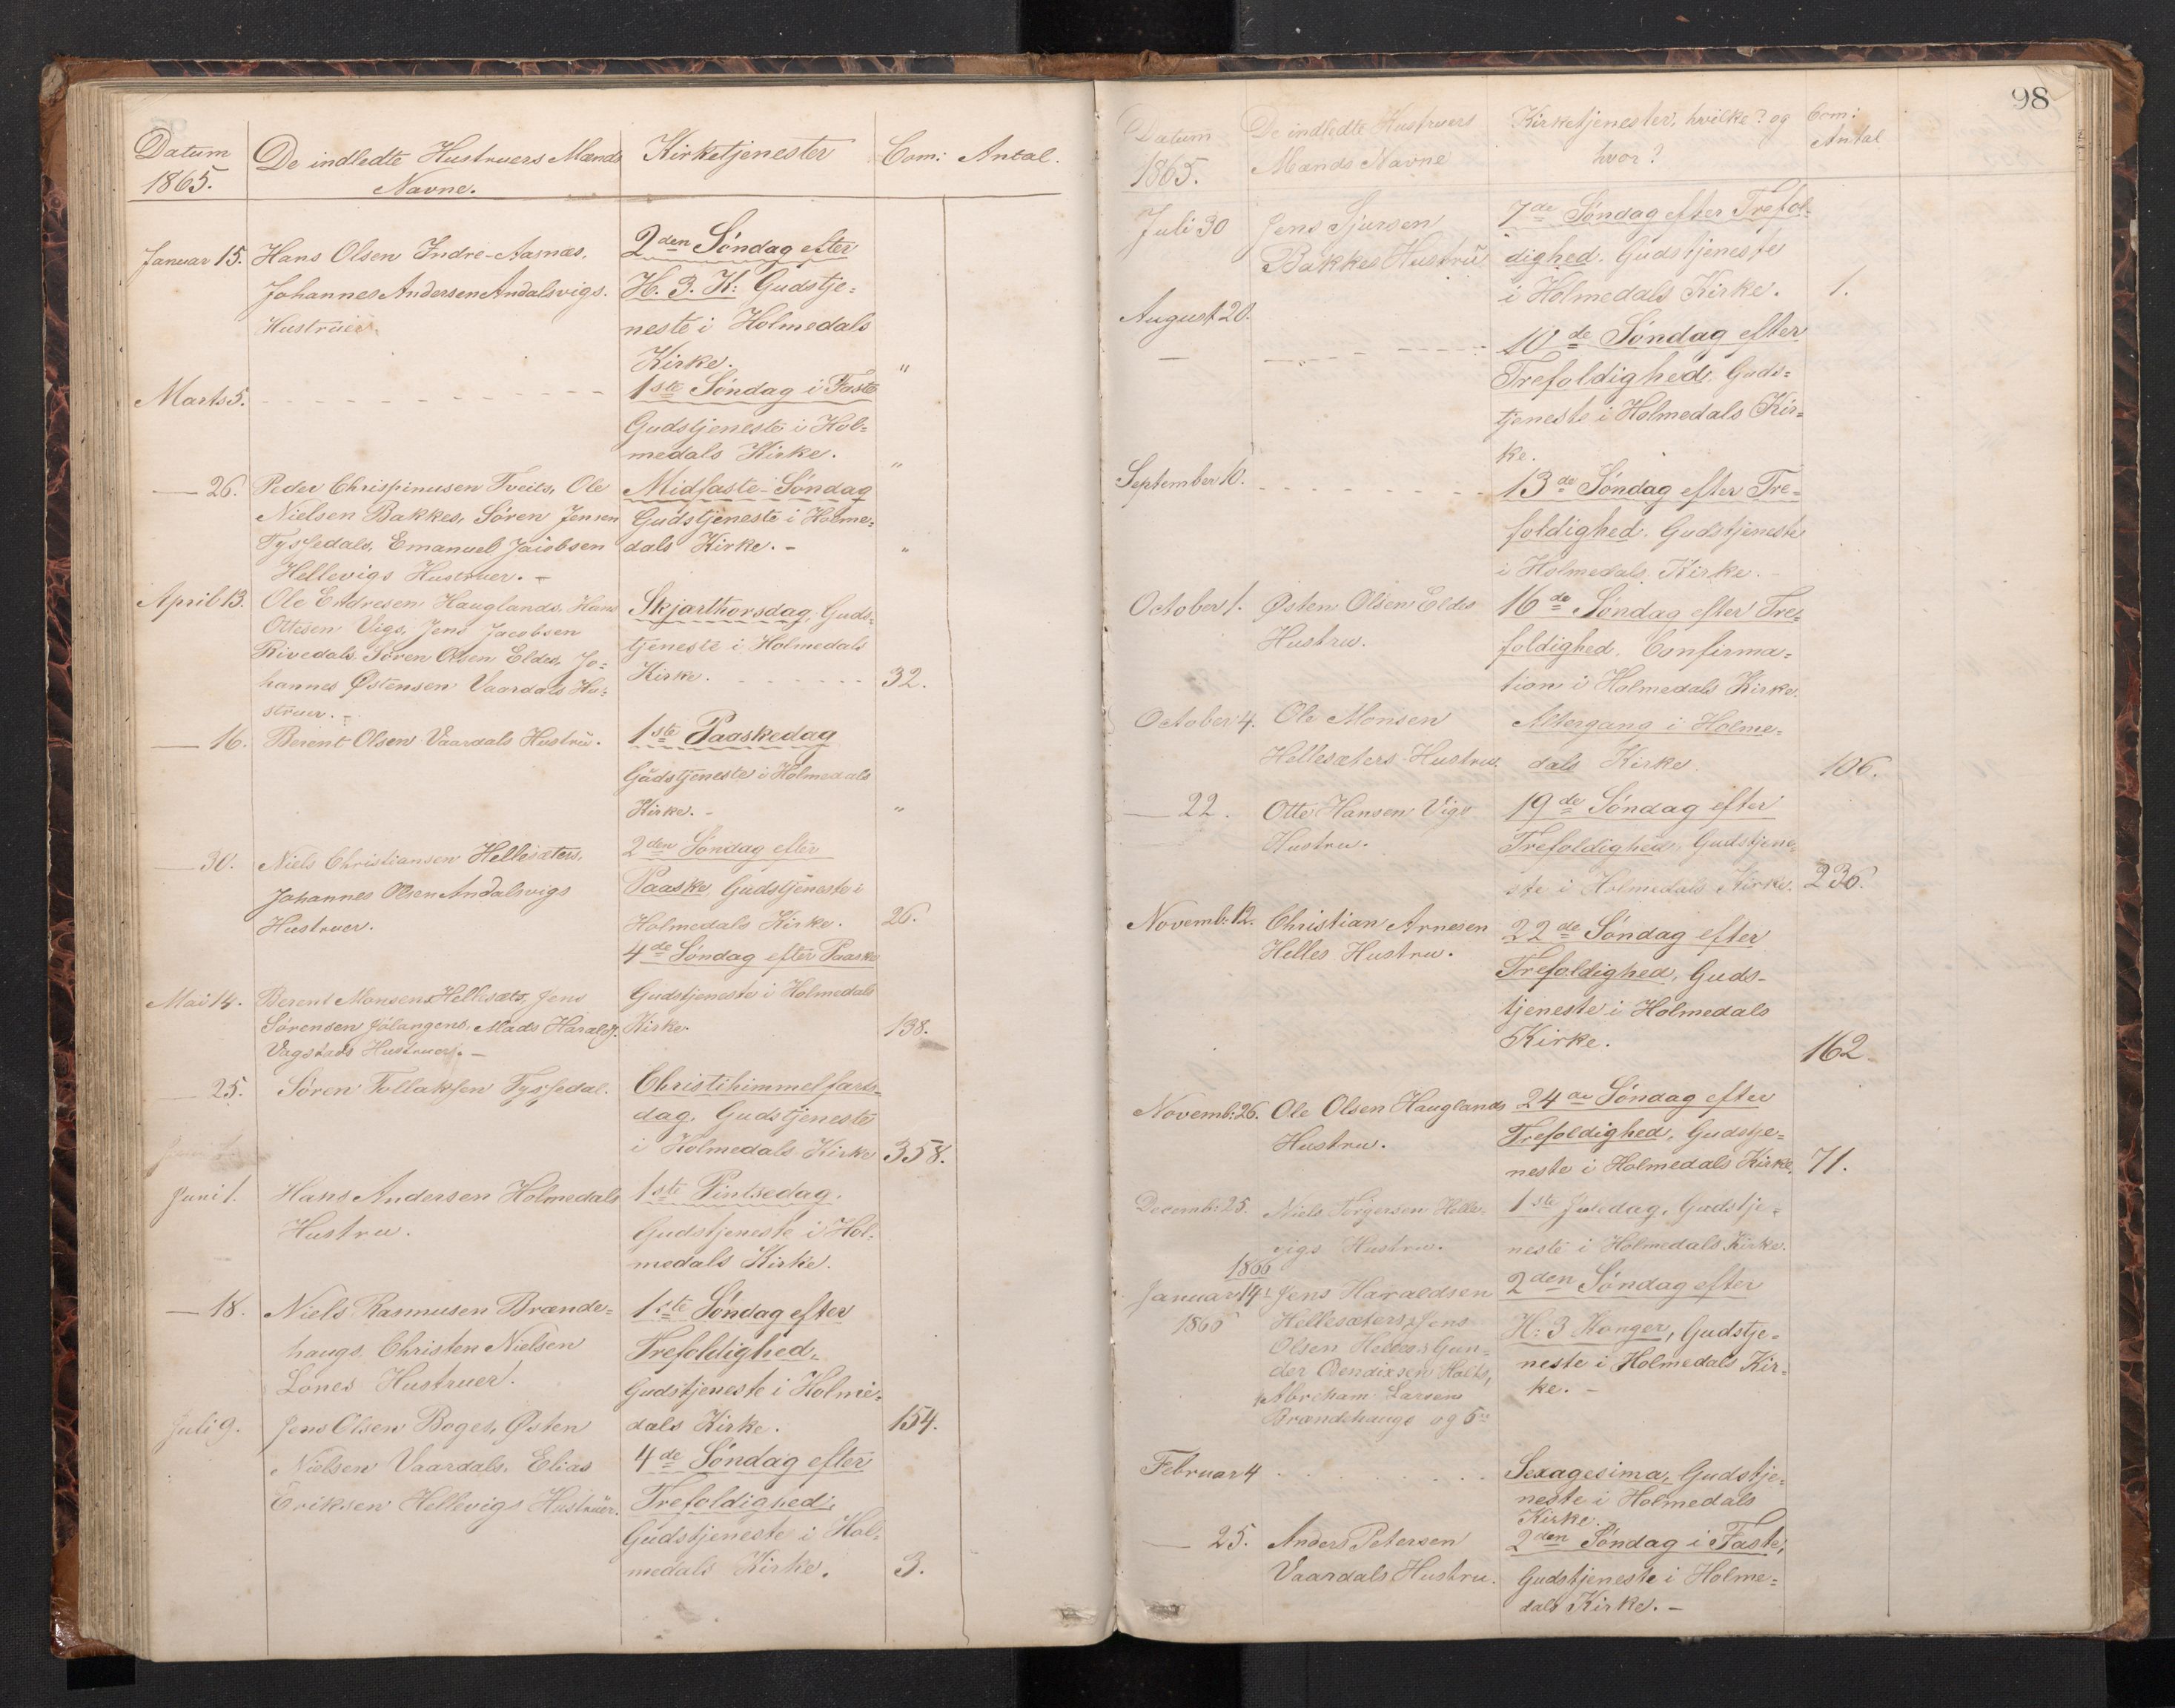 Datum
1865.
De indledte Hustruers Mænds
Navne.
Kirketjenester
Com: Antal.
Januar 15.
Hans Olsen Indre-Aasnæs,
Johannes Andersen Andalsvigs.
Hustruer.
2den Söndag efter
H. 3. K: Gudstje=
neste i Holmedals
Kirke.
"
Marts 5.
1ste Söndag i Faste
Gudstjeneste i Hol=
medals Kirke.
"
— 26.
Peder Chrispinusen Tveits, Ole
Nielsen Bakkes, Sören Jensen
Tyssedals, Emanuel Jaiobsen
Hellevigs Hustruer. -
Midfaste-Söndag
Gudstjeneste i Holme=
dals Kirke. -
"
April 13.
Ole Endresen Hauglands, Hans
Ottesen Vigs, Jens Jacobsen
Rivedals, Sören Olsen Eldes, Jo=
hannes Østensen Vaardals Hu=
struer. -
Skjærthorsdag, Guds=
tjeneste i Holmedals
Kirke.
32.
— 16.
Berent Olsen Vaardals Hustru.
1ste Paaskedag
Gudstjeneste i Holmedals
Kirke. -
"
— 30.
Niels Christiansen Hellesæters,
Johannes Olsen Andalsvigs
Hustruer.
2den Söndag efter
Paaske Gudstjeneste i
Holmedals Kirke.
26.
4de Söndag efter Paaske
Mai 14.
Berent Monsens Hellesæts, Jens
Sörensen Jölangens, Mads Harald.
Vagstads Hustruer. -
Gudstjeneste i Holmedals
Kirke.
138.
— 25.
Sören Tollaksen Tyssedal.
Christihimmelfarts-
dag, Gudstjeneste
i Holmedals Kirke
358.
Juni 1.
Hans Andersen Holmedals
Hustru.
1ste Pintsedag.
Gudstjeneste i Hol=
medals Kirke.
— 18.
Niels Rasmusen Brænde=
haugs, Christen Nielsen
Lones Hustruer.
1ste Söndag efter
Trefoldighed,
Gudstjeneste i Holme=
dals Kirke.
154.
Juli 9.
Jens Olsen Boges, Østen
Nielsen Vaardals, Elias
Eriksen Hellevigs Hustruer.
4de Söndag efter
Trefoldighed,
Gudstjeneste i Hol=
medals Kirke.
3.
98
Datum
1865.
De indledte Hustruers
Mænds Navne
Kirketjenester, hvilke? og
hvor?
Com:
Antal
Juli 30
Jens Sjursen
Bakkes Hustru
7de Söndag efter Trefol=
dighed. Gudstjeneste
i Holmedals Kirke.
1.
August 20.
10de Söndag efter
Trefoldighed, Guds=
tjeneste i Holmedals Kir=
ke.
September 10.
13de Söndag efter Tre=
foldighed. Gudstjeneste
i Holmedals Kirke. -
October 1.
Østen Olsen Eldes
Hustru.
16de Söndag efter Tre=
foldighed. Confirma=
tion i Holmedals Kirke.
October 4.
Ole Monsen
Hellesæters Hustru.
Altergang i Holme=
dals Kirke.
106.
— 22.
Otte Hansen Vigs
Hustru.
19de Söndag efter
Trefoldighed, Gudstjene-
ste i Holmedals Kirke.
236.
Novemb: 12.
Christian Arnesen
Helles Hustru.
22de Söndag efter
Trefoldighed, Guds-
tjeneste i Holmedals
Kirke.
162
Novemb: 26.
Ole Olsen Hauglands
Hustru.
24de Söndag efter
Trefoldighed, Gudstje=
neste i Holmedals Kirke.
71.
Decemb: 25.
Niels Torgersen Helle-
vigs Hustru.
1ste Juledag, Gudstje=
neste i Holmedals Kirke.
1866
Januar 14:
1866
Jens Haraldsen
Hellesæters, Jens
Olsen Helles, Gun=
der Bendixsen Holts,
Abreham Larsens
Brændehaugs og
2den Söndag efter
H: 3 Konger, Gudstje=
neste i Holmedals Kir=
ke. -
Februar 4
Sexagesima, Gudstje=
neste i Holmedals
Kirke.
— 25.
Anders Petersen
Vaardals Hustru.
2den Söndag i Faste,
Gudstjeneste i Holme=
dals Kirke. -